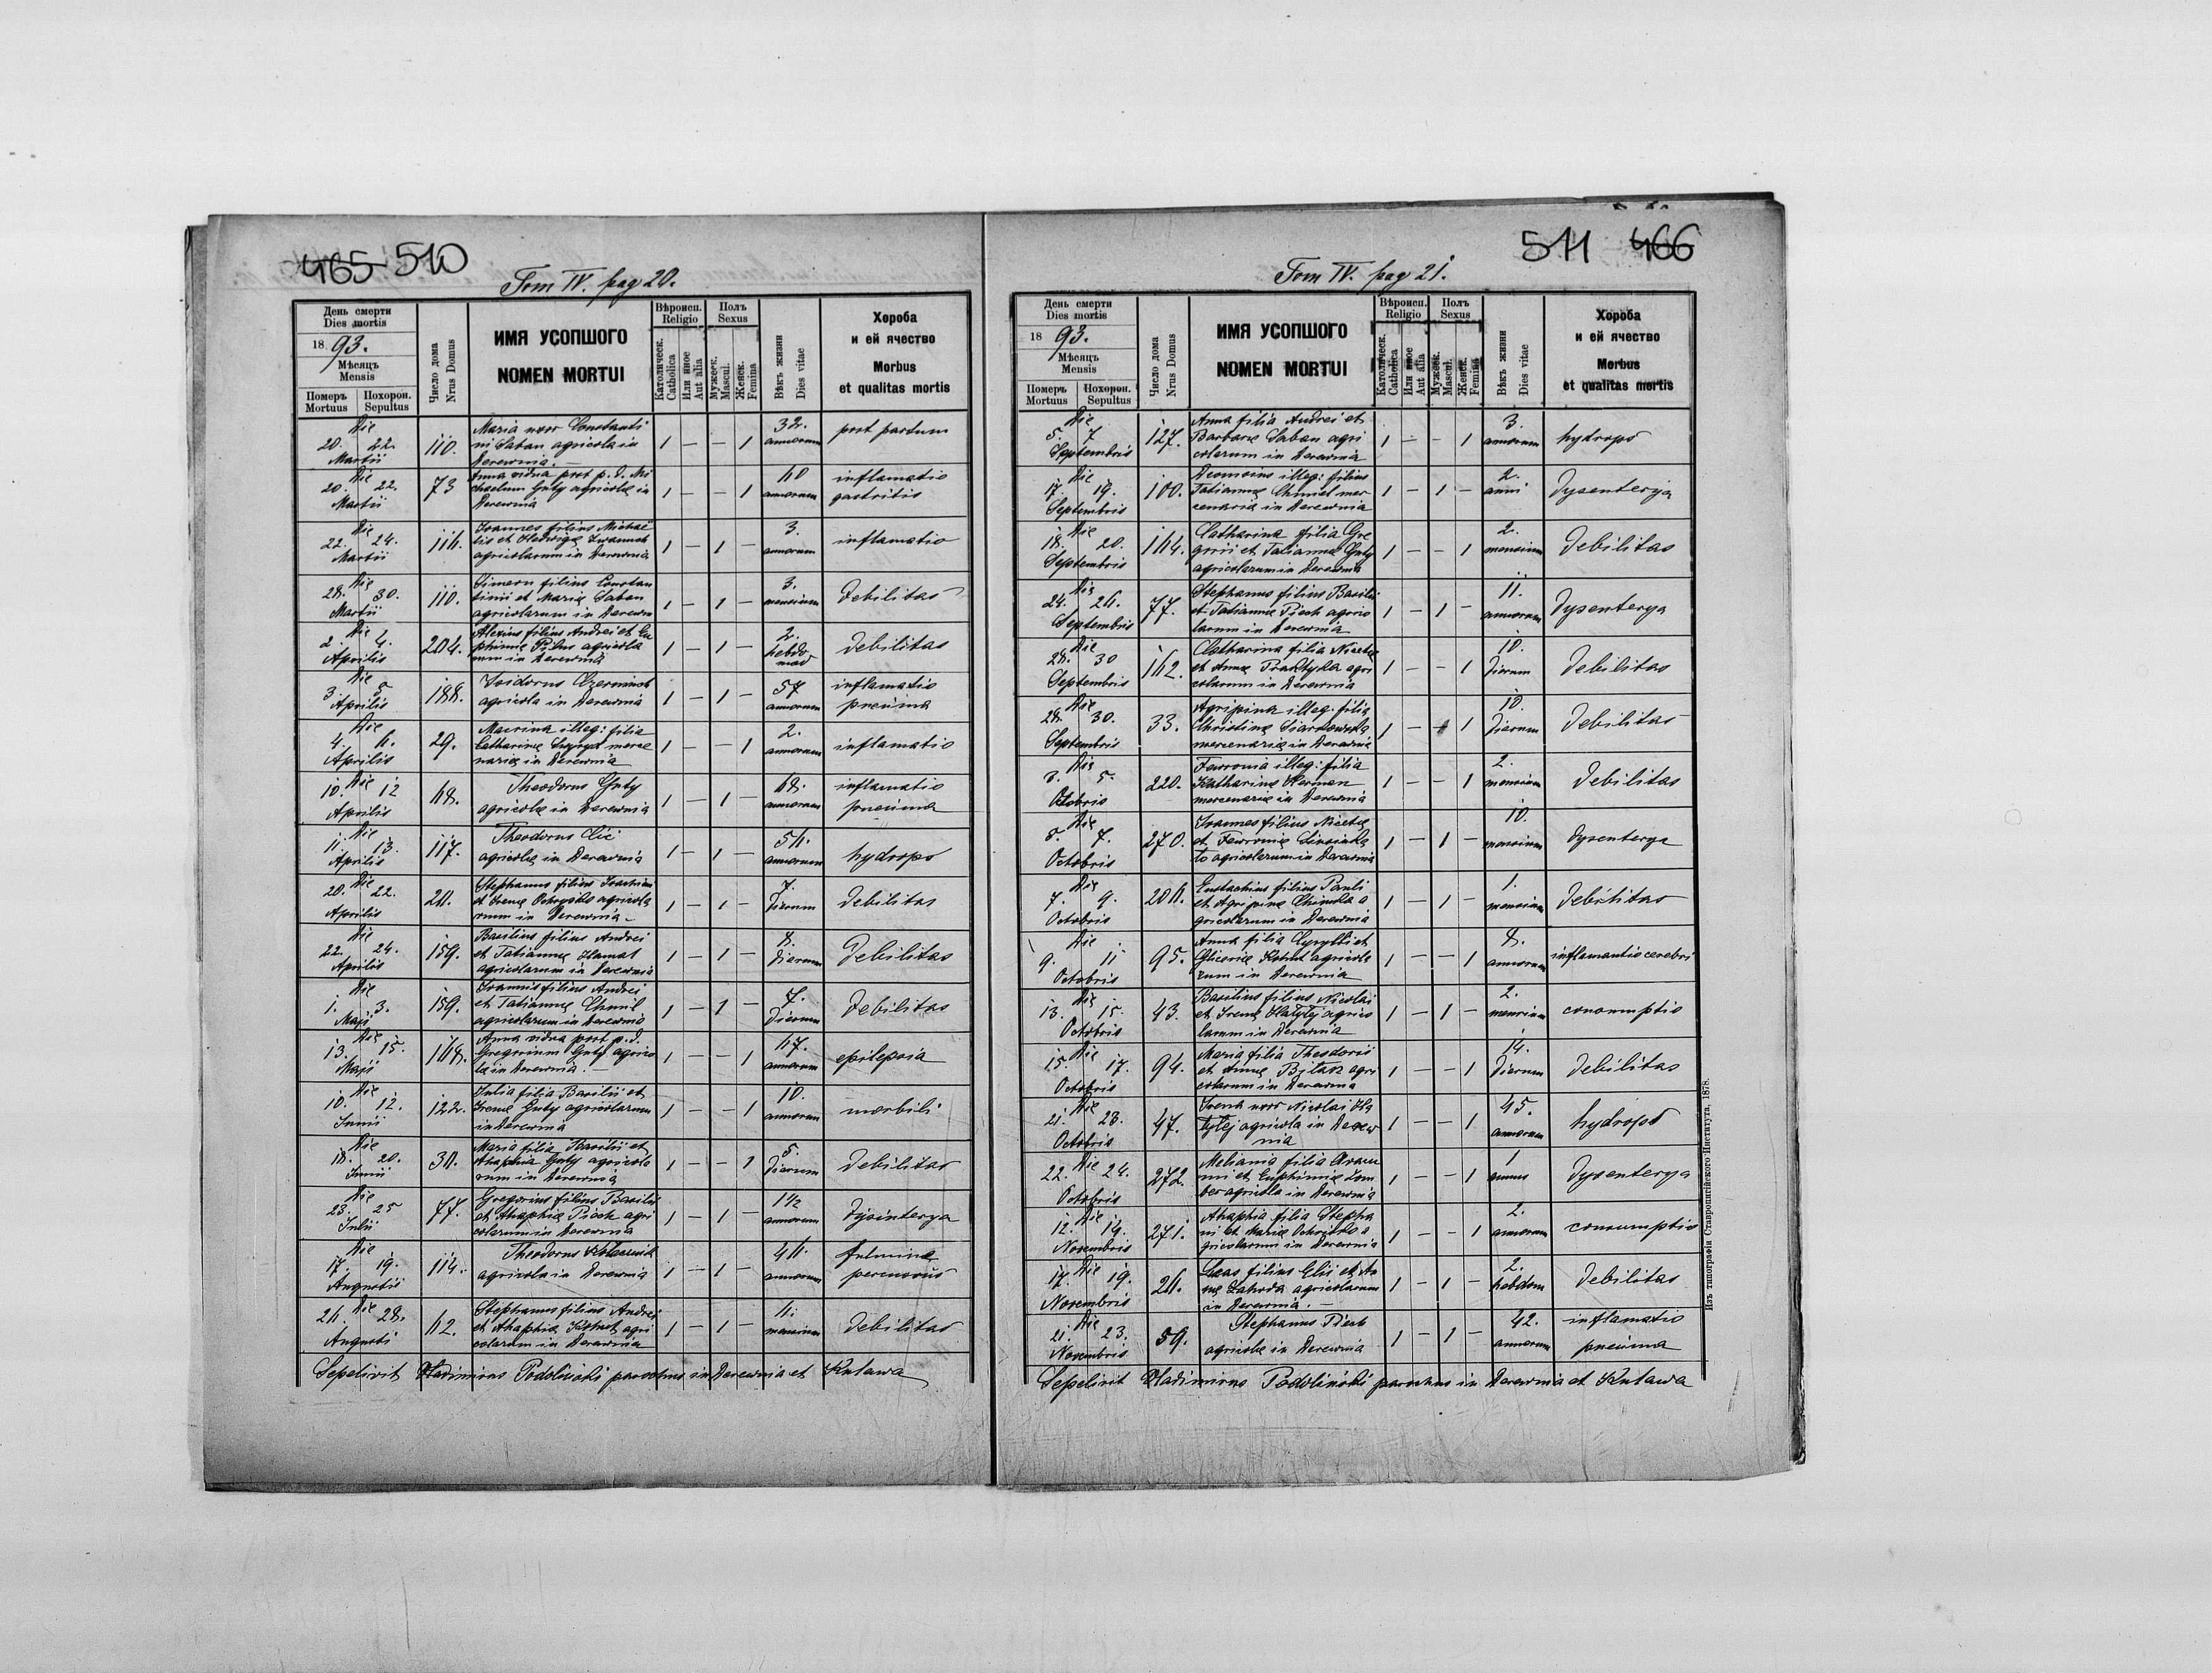 465 510
Tom IV. pag 20.
День смерти
Dies mortis
1893.
Мѣсяцъ
Mensis
Померъ Похорон.
Mortuus Sepultus
Число дома
Nrus Domus
ИМЯ УСОПШОГО
NOMEN MORTUI
Вѣроисп.
Religio
Католическ.
Catholica
Или иное
Aut alia
Полъ
Sexus
Мужеск.
Mascul.
Женск.
Femina
Вѣкъ жизни
Dies vitae
Хороба
и ей ячество
Morbus
et qualitas mortis
Die 20. 22. Martii 110. Maria uxor Constanti
ni Saban agricola in
Derewnia. 1 – – 1 32. annorum post partum
Die 20. 22. Martii 73 Anna vidua post p. d. Mi
chaelem Guty agricolæ in
Derewnia 1 – – 1 60 annorum inflamatio
gastritis
Die 22. 24. Martii 116. Joannes filius Michae
lis et Hedvigæ
agricolarum in Derewnia 1 – 1 – 3. annorum inflamatio
Die 28. 30. Martii 110. Simeon filius Constan
tini et Mariæ Saban
agricolarum in Derewn 1 – 1 – 3. mensium Debilitas
Die 2 4. Aprilis 204. Alexius filius Andrei et Eu
phimiæ agricola
rum in Derewnia 1 – 1 – 2. hebdo
mad Debilitas
Die 3 5 Aprilis 188. Isidorus
agricola in Derewnia 1 – 1 – 57 annorum inflamatio
pneuma
Die 4. 6. Aprilis 29. Macrina illeg: filia
Catharinæ merce
nariæ in Derewnia 1 – – 1 2. annorum inflamatio
Die 10. 12 Aprilis 68. Theodorus Guty
agricola in Derewnia 1 – 1 – 68. annorum inflamatio
pneuma
Die 11. 13. Aprilis 117. Theodorus Clic
agricola in Derewnia 1 – 1 – 56. annorum hydrops
Die 20. 22. Aprilis 26. Stephanus filius
et Irenæ agricola
rum in Derewnia 1 – 1 – 7. dierum Debilitas
Die 22. 24. Aprilis 159. Basilius filius Andrei
et Tatiannæ
agricolarum in Derewnia 1 – 1 – 8. dierum Debilitas
Die 1. 3. Maji 159. Joannis filius Andrei
et Tatiannæ Chmil
agricolarum in Derewnia 1 – 1 – 7. dierum Debilitas
Die 13. 15. Maji 168. Anna vidua post p. d.
Gregorium Guty agrico
la in Derewnia. 1 – – 1 67. annorum epilepsia
Die 10. 12. Junii 122. Julia filia Basilii et
Irenæ Guty agricolarum
in Derewnia 1 – – 1 10. annorum morbili
Die 18. 20. Junii 36. Maria filia Basilii et
Ahaphia Guty agricola
rum in Derewnia 1 – – 1 5. dierum Debilitas
Die 23. 25 Julii 77. Gregorius filius Basilii
et Ahaphiæ Piech agri
colarum in Derewnia 1 – 1 – 1½ annorum Dysinterya
Die 17. 19. Augustii 114. Theodorus
agricola in Derewnia 1 – 1 – 46. annorum fulmine
percussus
Die 26. 28. Augusti 62. Stephanus filius Andrei
et Ahaphiæ Kohut agri
colarum in Derewnia 1 – 1 – 6. mensium Debilitas
Sepelivit Vladimirus Podolinski parochus in Derewnia et Kulawa
511 466
Tom IV. pag 21.
День смерти
Dies mortis
1893.
Мѣсяцъ
Mensis
Померъ Похорон.
Mortuus Sepultus
Число дома
Nrus Domus
ИМЯ УСОПШОГО
NOMEN MORTUI
Вѣроисп.
Religio
Католическ.
Catholica
Или иное
Aut alia
Полъ
Sexus
Мужеск.
Mascul.
Женск.
Femina
Вѣкъ жизни
Dies vitae
Хороба
и ей ячество
Morbus
et qualitas mortis
Die 5. 7 Septembris 127. Anna filia Andrei et
Barbaræ Saban agri
colarum in Derewnia 1 – – 1 3. annorum hydrops
Die 17. 19. Septembris 100. illeg: filius
Tatiannæ Chmiel mer
cenaria in Derewnia 1 – 1 – 2. anni Dysenterja
Die 18. 20. Septembris 164. Catharina filia Gre
gorii et Tatiannæ Guty
agricolarum in Derewnia 1 – – 1 2. mensium Debilitas
Die 24. 26. Septembris 77. Stephanus filius Basilii
et Tatiannæ Piech agrico
larum in Derewnia 1 – 1 – 11. annorum Dysenterya
Die 28. 30 Septembris 162. Catharina filia Nicetæ
et Annæ agri
colarum in Derewnia 1 – – 1 10. dierum Debilitas
Die 28. 30. Septembris 33. Agripina illeg: filia
Christinæ
mercenariæ in Derewnia 1 – 1 10. dierum Debilitas
Die 3. 5. Octobris 220. Fewronia illeg: filia
Katharinæ Herman
mercenariæ in Derewnia 1 – – 1 2. mensium Debilitas
Die 5. 7. Octobris 270. Joannes filius Nicetæ
et Fewroniæ
agricolarum in Derewnia 1 – 1 – 10. mensium Dysenterya
Die 7. 9. Octobris 206. Eustachius filius Pauli
et Agripinæ a
gricolarum in Derewnia 1 – 1 – 1. mensium Debilitas
Die 9. 11 Octobris 95. Anna filia Cyrylli et
Gliceriæ Kohut agricola
rum in Derewnia 1 – – 1 8. annorum inflamantio cerebri
Die 13. 15. Octobris 43. Basilius filius Nicolai
et Irenæ Hatylej agrico
larum in Derewnia 1 – 1 – 2. mensium consumptio
Die 15. 17. Octobris 94. Maria filia Theodorii
et Annæ Bilak agri
colarum in Derewnia 1 – – 1 14. dierum Debilitas
Die 21. 23. Octobris 47. Irena uxor Nicolai Ha
tylej agricola in Derew
nia 1 – – 1 45. annorum hydrops
Die 22. 24. Octobris 272. Melania filia
et Euphimiæ
agricola in Derewnia 1 – – 1 1 annus Dysenterya
Die 12. 14. Novembris 271. Ahaphia filia Stepha
ni et Mariæ a
gricolarum in Derewnia 1 – – 1 2. annorum consumptio
Die 17. 19. Novembris 26. Lucas filius Eliæ et An
næ Zahoda agricolarum
in Derewnia. 1 – 1 – 2. hebdom Debilitas
Die 21. 23. Novembris 59. Stephanus Piech
agricola in Derewnia 1 – 1 – 42. annorum inflamatio
pneuma
Sepelivit Vladimirus Podolinski parochus in Derewnia et Kulawa
Изъ типографіи Ставропигійского Института, 1878.